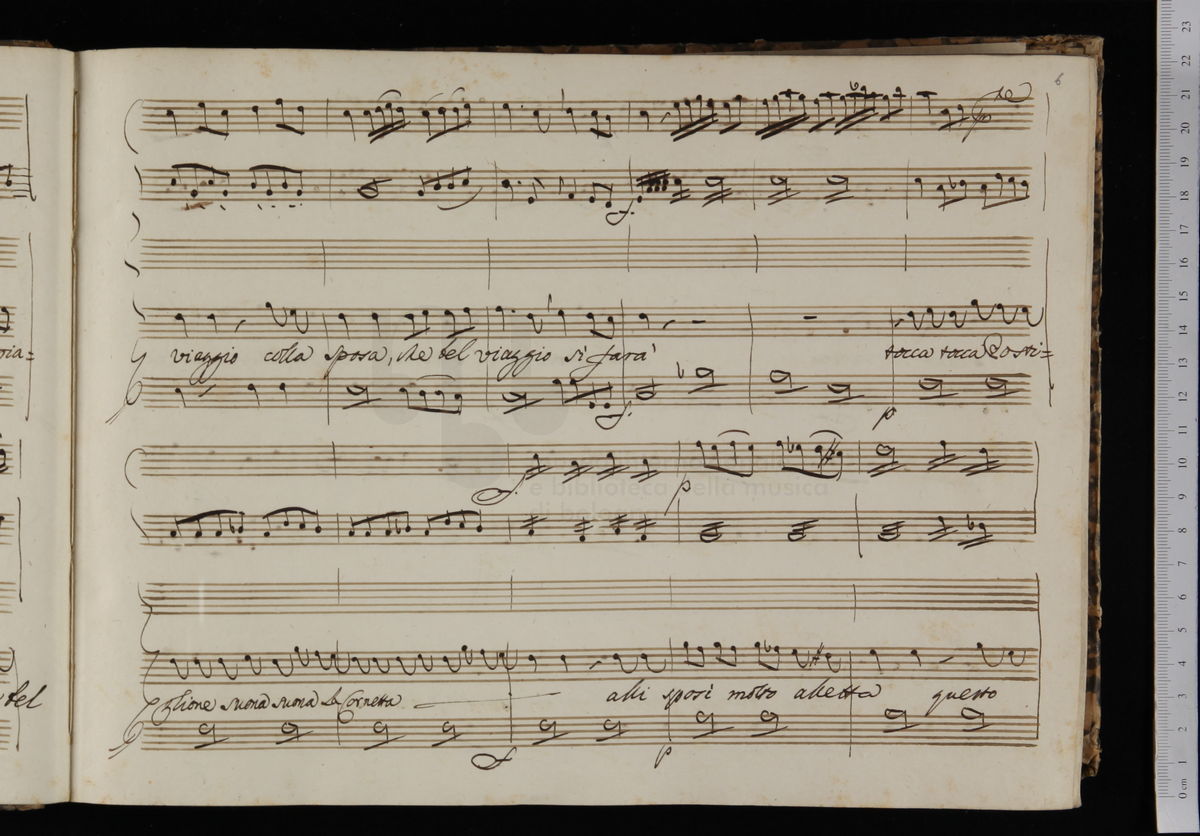 6
viaggio colla sposa, che bel viaggio si farà
tocca tocca Posti=
p
p
e biblioteca della musica
di bologna
bel
glione suona suona la Cornetta
alli sposi molto alletta questo
p
0 cm 1 2 3 4 5 6 7 8 9 10 11 12 13 14 15 16 17 18 19 20 21 22 23